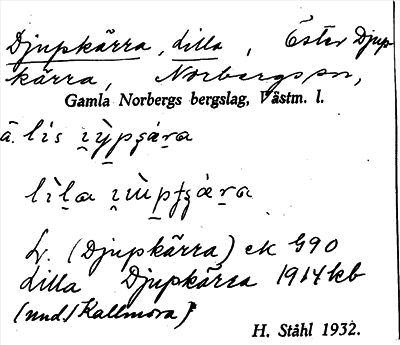 Djupkärra, Lilla, Öster Djup-
kärra, Norbergs sn,
Gamla Norbergs bergslag, Västm. l.
L. (Djupkärra) ek G90
Lilla Djupkärra 1914 kb
(und. Kallmora)
H. Ståhl 1932.